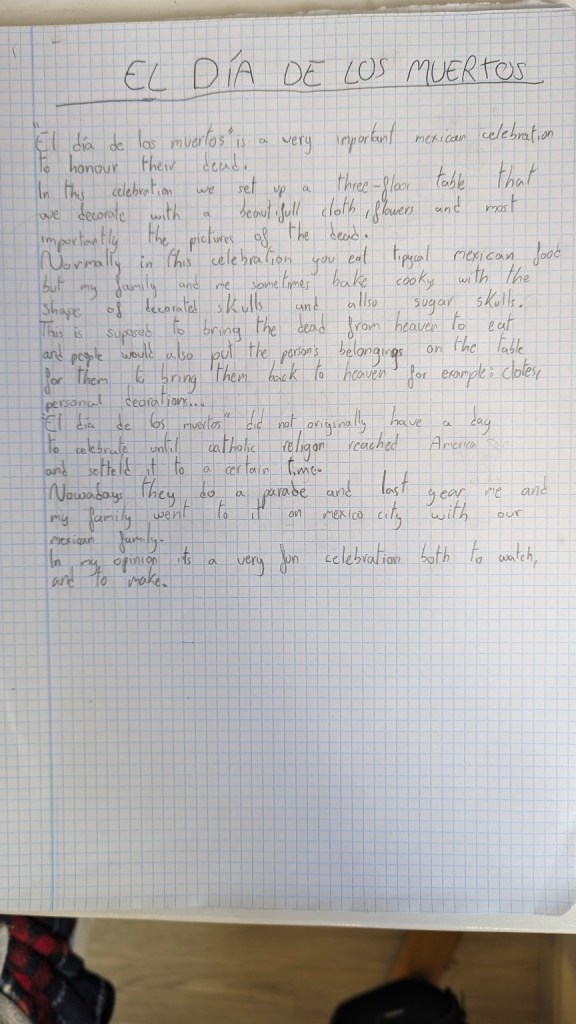 EL DÍA DE LOS MUERTOS
"El día de los muertos" is a very important mexican celebration
to honour their dead.
In this celebration we set up a three-floor table that
we decorate with a beautifull cloth, flowers and most
importantly the pictures of the dead.
Normally in this celebration you eat tipycal mexican food
but my family and me sometimes bake cooky with the
shape of decorated skulls and allso sugar skulls.
This is suposed to bring the dead from heaven to eat
and people would also put the person's belongings on the table
for them to bring them back to heaven for example: clotes,
personal decorations...
"El día de los muertos" did not originally have a day
to celebrate until catholic religon reached America
and setteld it to a certain time.
Nowabays they do a parade and last year me and
my family went to it on mexico city with our
mexican family.
In my opinion its a very fun celebration both to watch,
and to make.